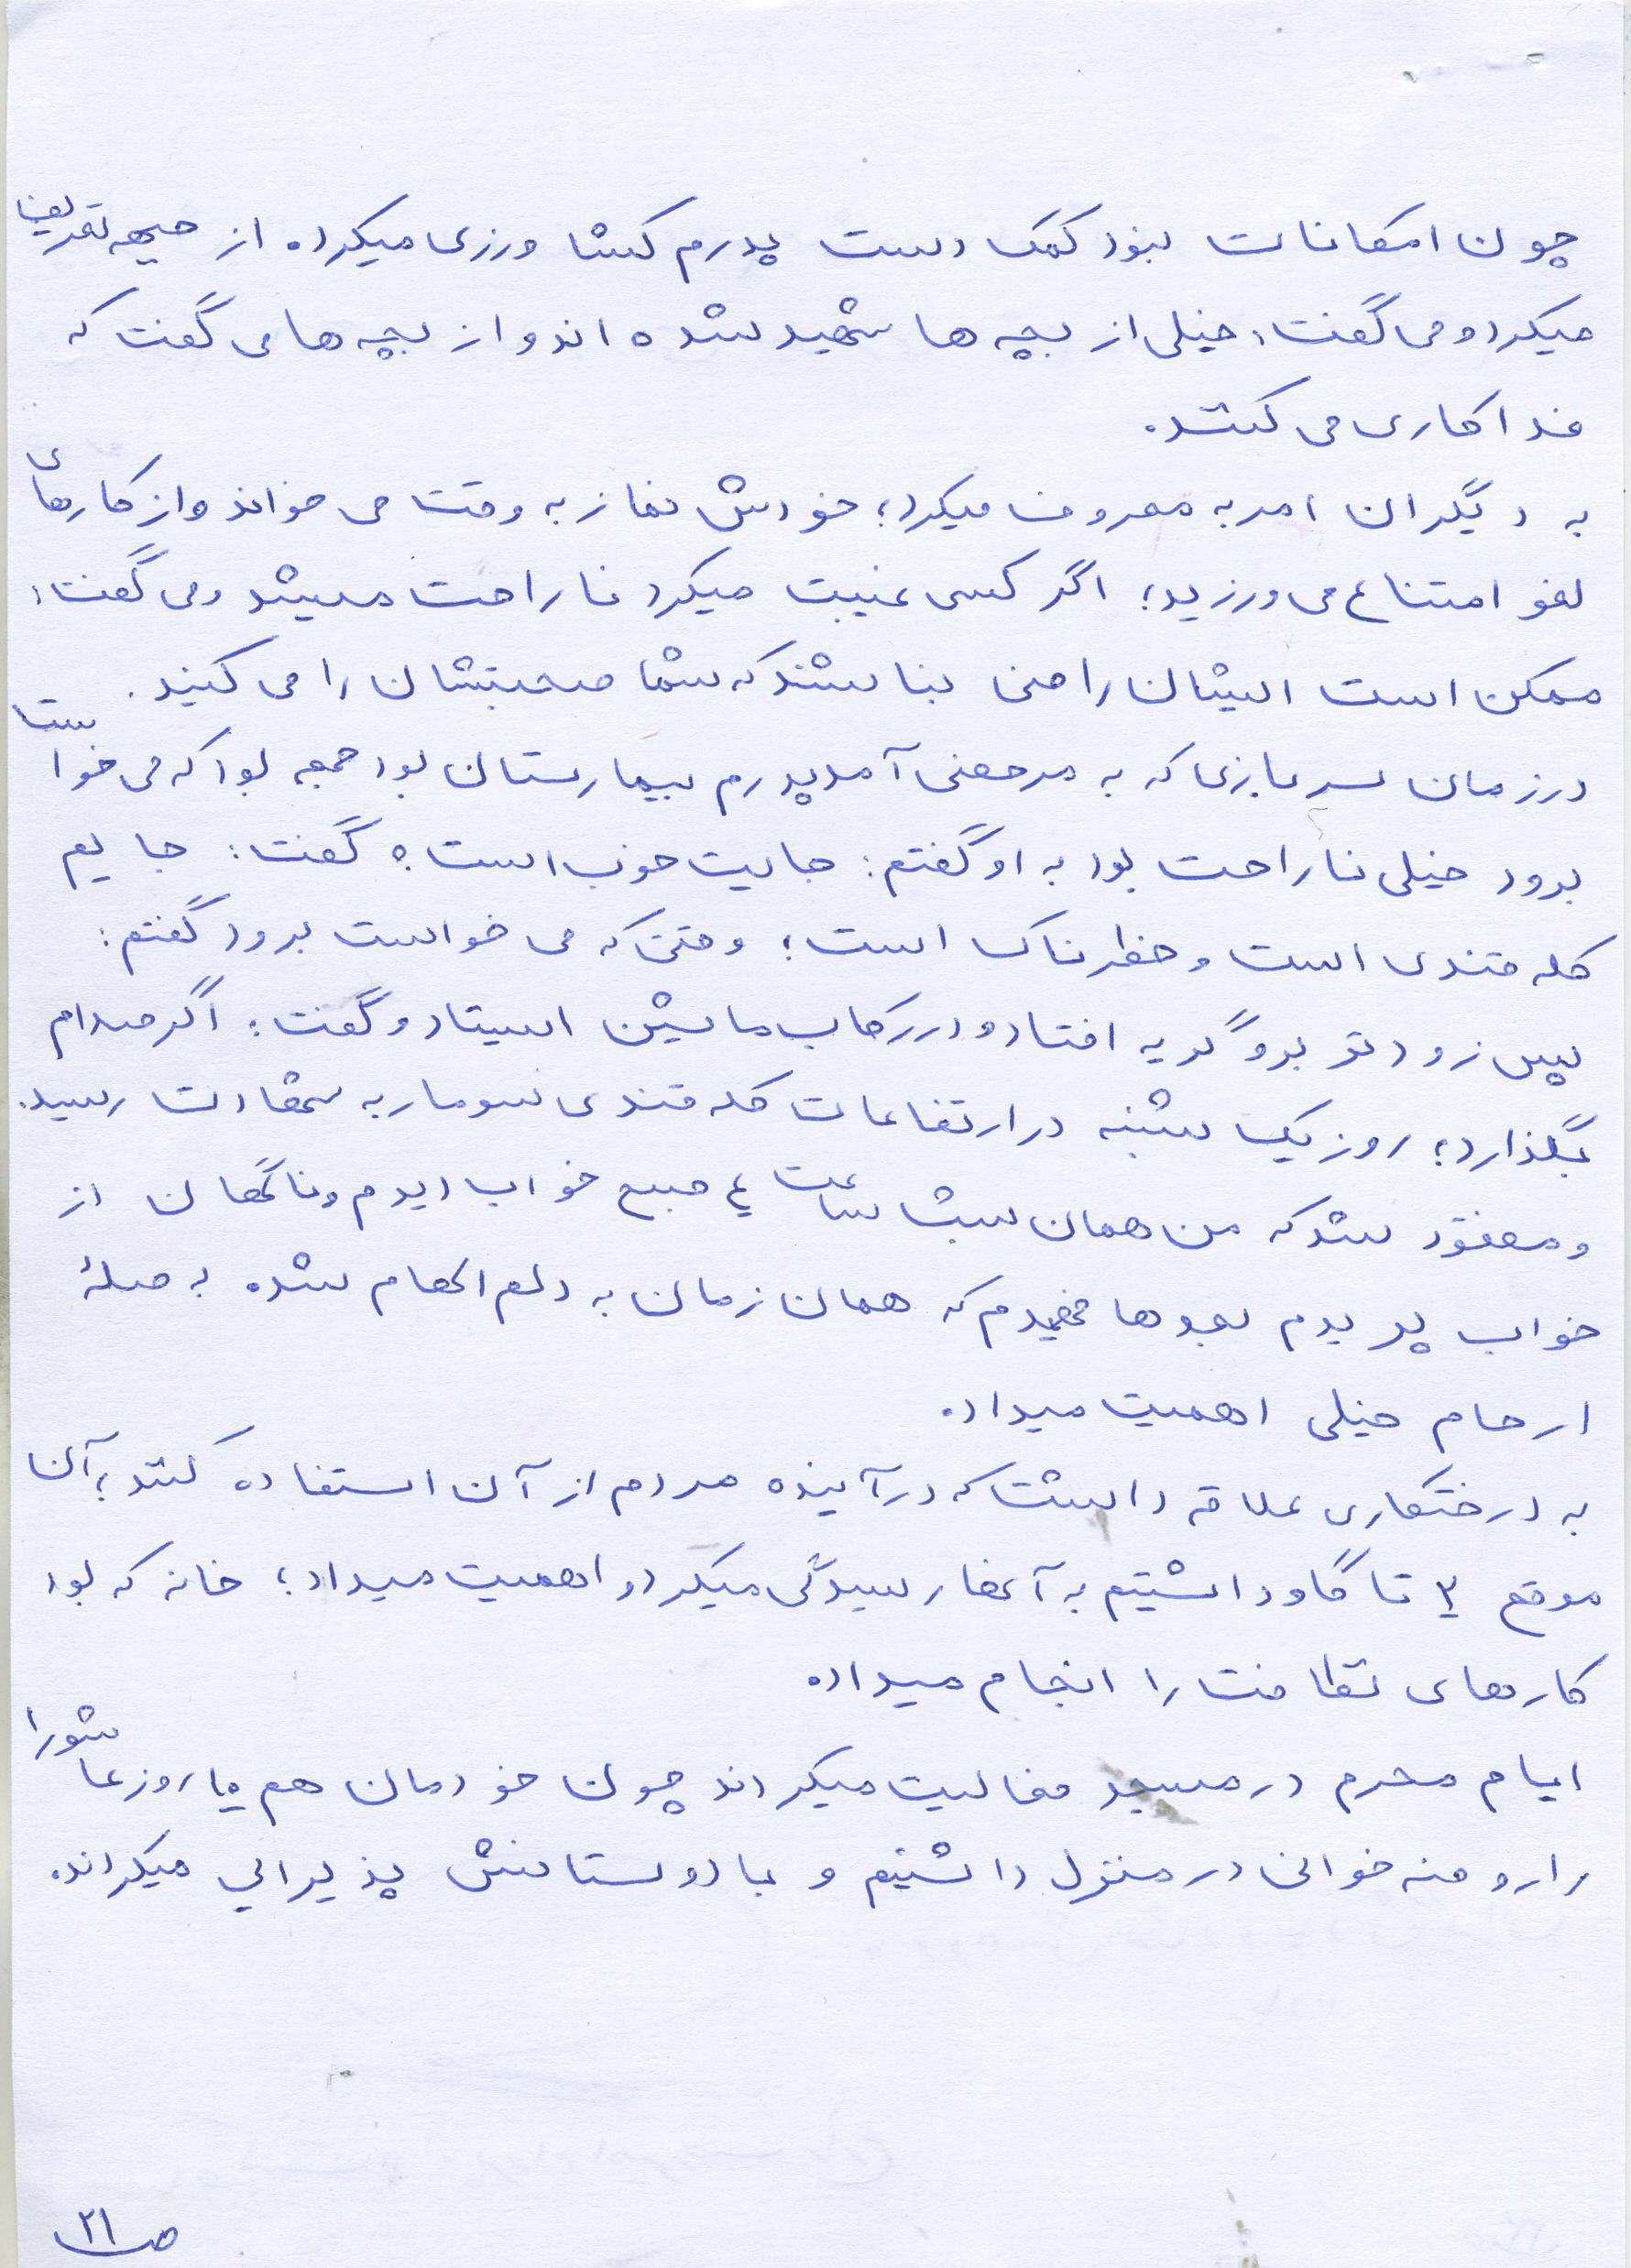 چون امکانات نبود کمک دست پدرم کشاورزی میکرد. از جبهه تعریف
میکرد و می گفت: خیلی از بچه ها شهید شده اند و از بچه ها می گفت که
فداکاری می کنند.
به دیگران امر به معروف میکرد؛ خودش نماز به وقت می خواند و از کارهای
لغو امتناع می ورزید؛ اگر کسی غیبت میکرد ناراحت میشد و می گفت:
ممکن است ایشان راضی نباشند که شما صحبتشان را می کنید.
در زمان سربازی که به مرخصی آمد پدرم بیمارستان بود جمعه بود که می خواست
برود خیلی ناراحت بود به او گفتم: جایت خوب است؟ گفت: جایم
کله قندی است و خطرناک است؛ وقتی که می خواست برود گفتم:
پس زودتر برو گریه افتاد و در رکاب ماشین ایستاد و گفت: اگر صدام
بگذارد؛ روز یک شنبه در ارتفاعات کله قندی سومار به شهادت رسید.
و مفقود شد که من همان شب ساعت ۴ صبح خواب دیدم و ناگهان از
خواب پریدم بعدها فهمیدم که همان زمان به دلم الهام شده. به صلهٔ
ارحام خیلی اهمیت میداد.
به درختکاری علاقه داشت که در آینده مردم از آن استفاده کنند؛ آن
موقع ۳ تا گاو داشتیم به آنها رسیدگی میکرد و اهمیت میداد؛ خانه که بود
کارهای نظافت را انجام میداد.
ایام محرم در مسجد فعالیت میکردند چون خودمان هم روز عاشورا
را روضه خوانی در منزل داشتیم و با دوستانش پذیرایی میکردند.
ص۲۱